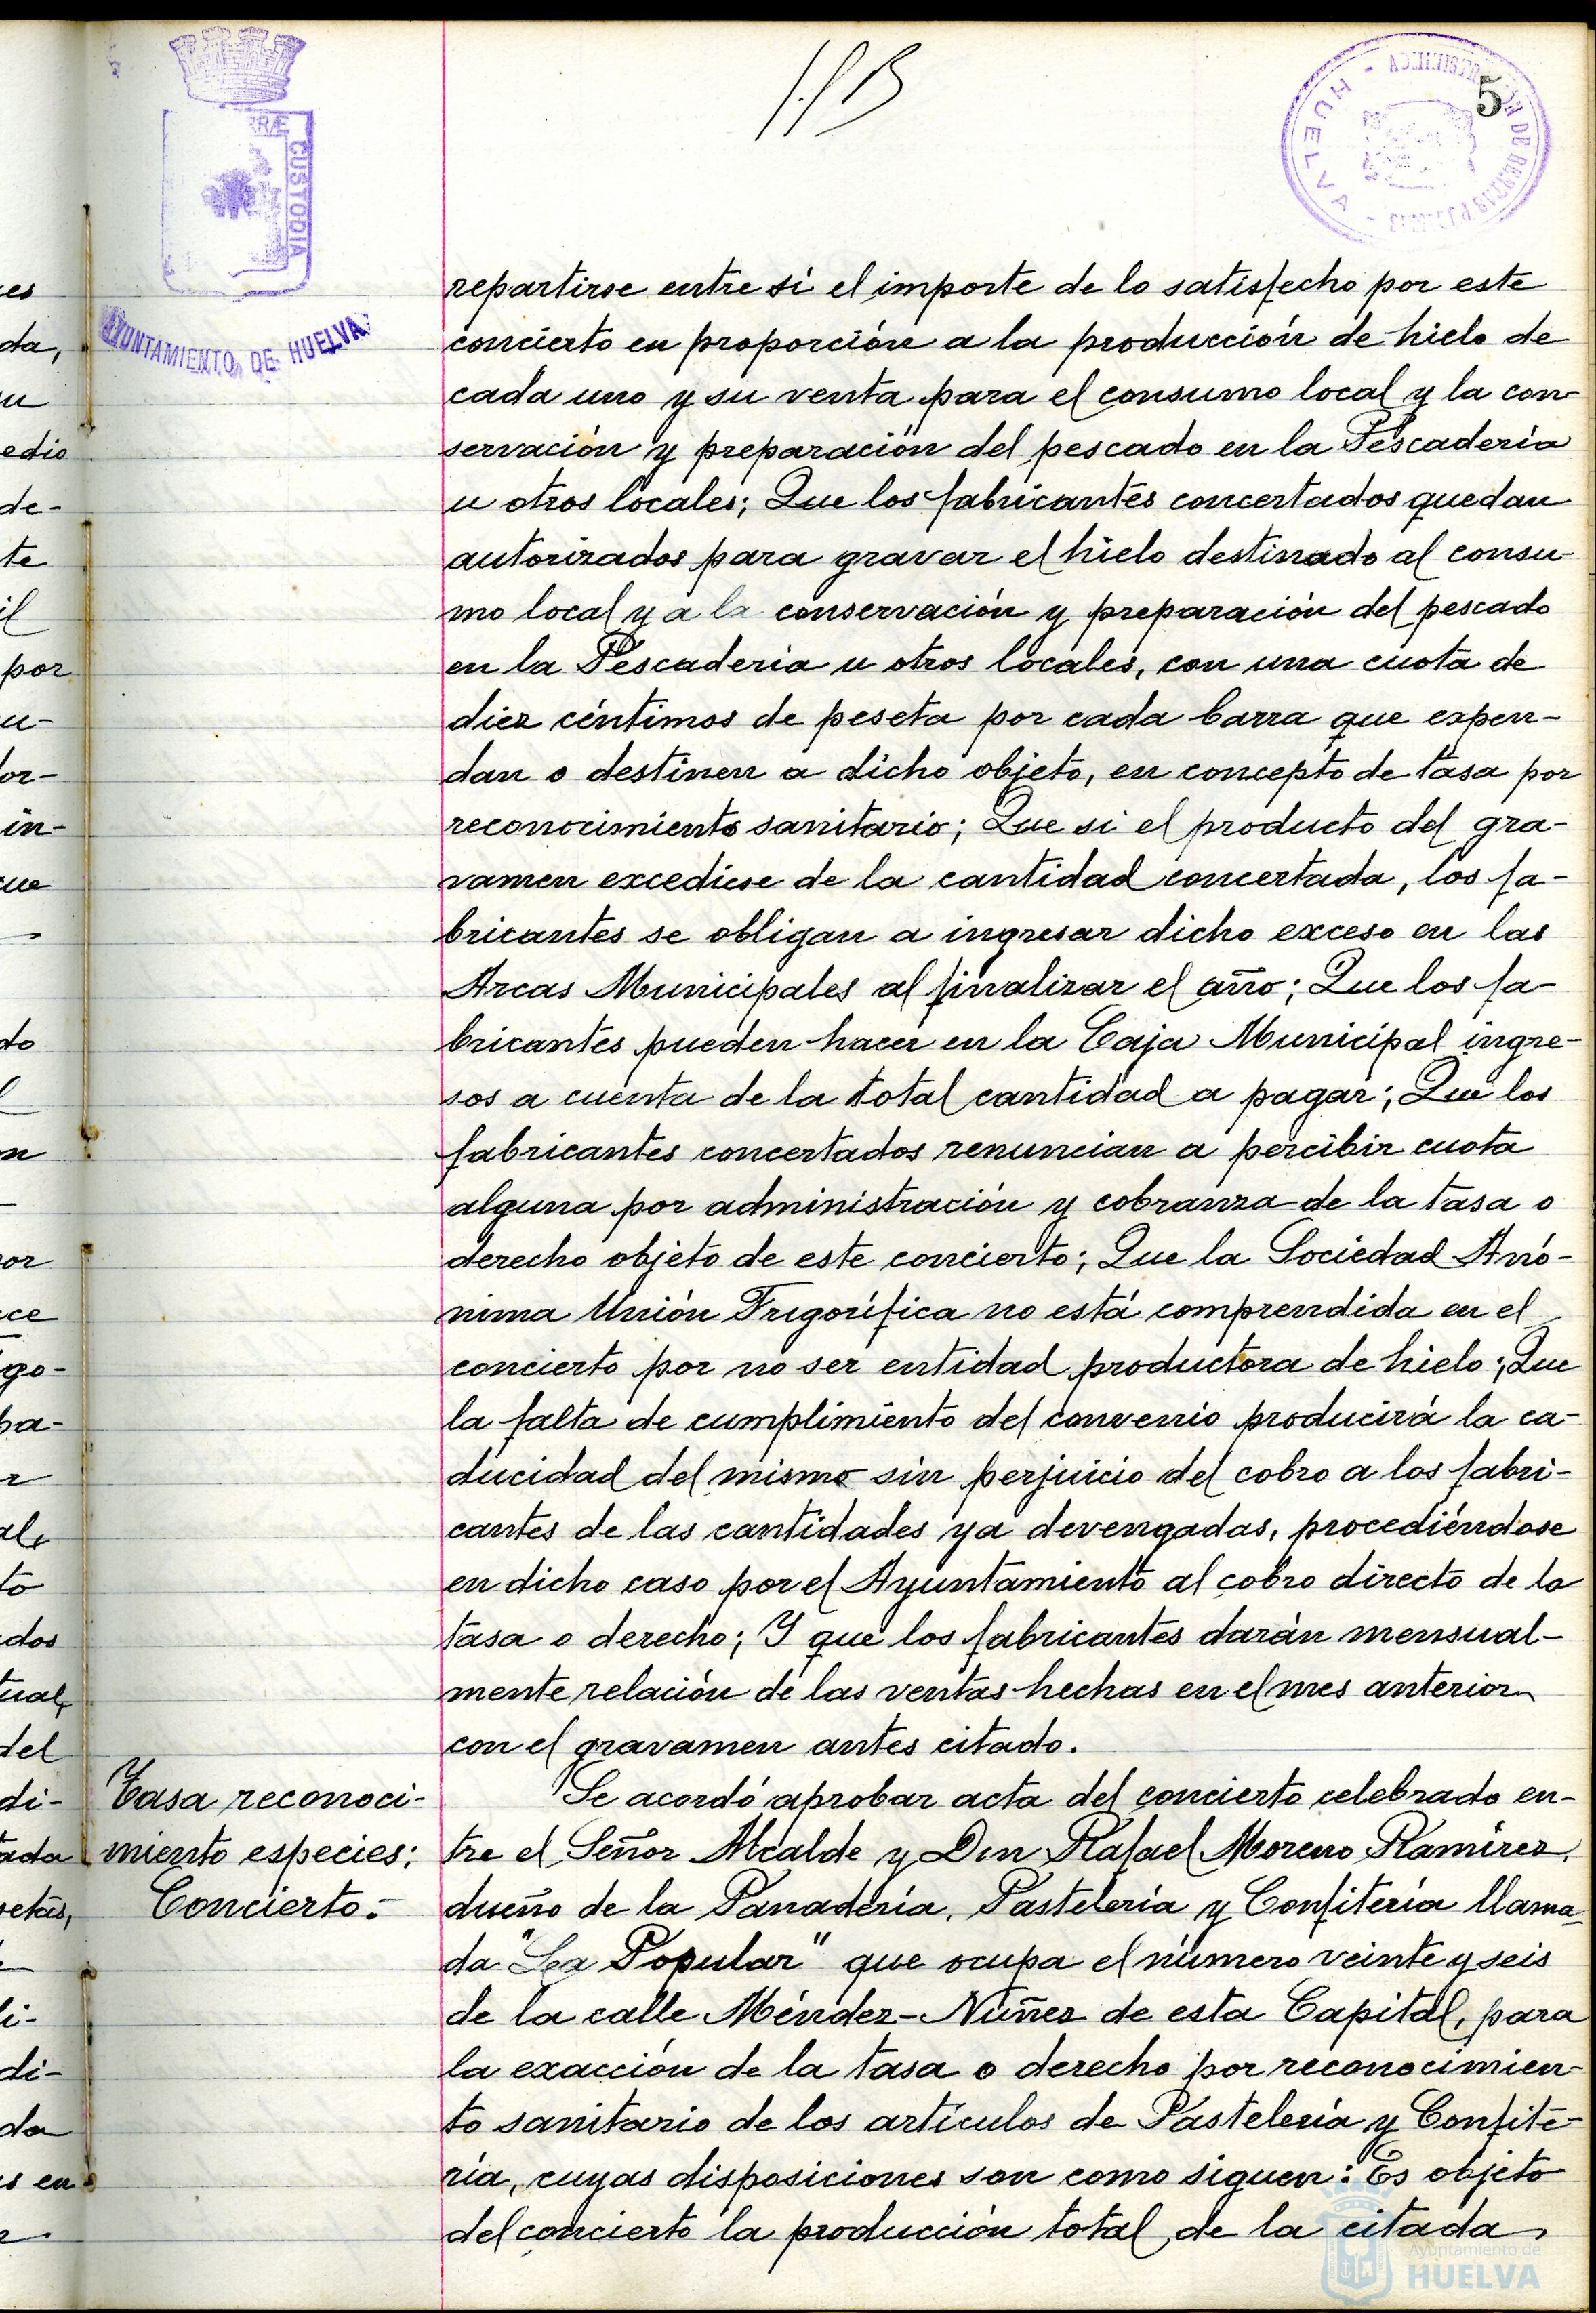 5
RRÆ
CUSTODIA
AYUNTAMIENTO DE HUELVA
HUELVA
repartirse entre sí el importe de lo satisfecho por este
concierto en proporción a la producción de hielo de
cada uno y su venta para el consumo local y la con-
servación y preparación del pescado en la Pescadería
u otros locales; Que los fabricantes concertados quedan
autorizados para gravar el hielo destinado al consu-
mo local y a la conservación y preparación del pescado
en la Pescaderia u otros locales, con una cuota de
diez céntimos de peseta por cada barra que expen-
dan o destinen a dicho objeto, en concepto de tasa por
reconocimiento sanitario; Que si el producto del gra-
vamen excediese de la cantidad concertada, los fa-
bricantes se obligan a ingresar dicho exceso en las
Arcas Municipales al finalizar el año; Que los fa-
bricantes pueden hacer en la Caja Municipal ingre-
sos a cuenta de la total cantidad a pagar; Que los
fabricantes concertados renuncian a percibir cuota
alguna por administración y cobranza de la tasa o
derecho objeto de este concierto; Que la Sociedad Anó-
nima Unión Frigorífica no está comprendida en el
concierto por no ser entidad productora de hielo; Que
la falta de cumplimiento del convenio producirá la ca-
ducidad del mismo sin perjuicio del cobro a los fabri-
cantes de las cantidades ya devengadas, procediéndose
en dicho caso por el Ayuntamiento al cobro directo de la
tasa o derecho; Y que los fabricantes darán mensual-
mente relación de las ventas hechas en el mes anterior
con el gravamen antes citado.
Tasa reconoci-
miento especies:
Concierto.-
Se acordó aprobar acta del concierto celebrado en-
tre el Señor Alcalde y Don Rafael Moreno Ramírez,
dueño de la Panadería, Pastelería y Confitería llama-
da "La Popular" que ocupa el número veinte y seis
de la calle Méndez-Núñez de esta Capital, para
la exacción de la tasa o derecho por reconocimien-
to sanitario de los artículos de Pastelería y Confite-
ría, cuyas disposiciones son como siguen: Es objeto
del concierto la producción total de la citada
Ayuntamiento de
HUELVA